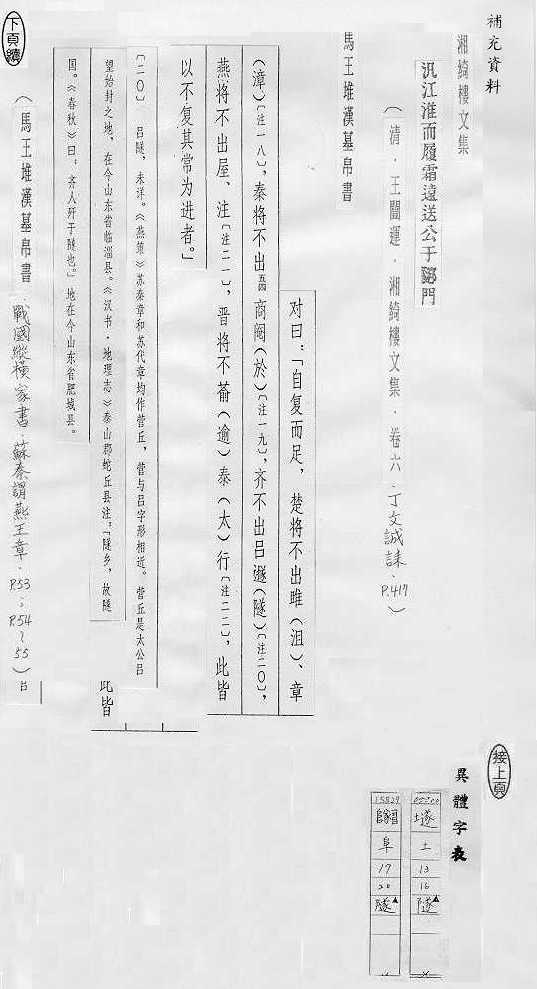 補充資料
湘綺樓文集
汎江淮而履霜遠送公于𨻶門
(清.王闓運.湘綺樓文集.卷六.丁文誠誄.P.417)
馬王堆漢墓帛書
对曰:「自复而足,楚将不出雎(沮)、章
(漳)〔注一八〕,秦将不出五四商阏(於)〔注一九〕,齐不出吕遂(隧)〔注二〇〕,
燕将不出屋、注〔注二一〕,晋将不萮(逾)泰(太)行〔注二二〕,此皆
以不复其常为进者。」
〔二〇〕 吕隧,未详。《燕策》苏秦章和苏代章均作营丘,营与吕字形相近。营丘是太公吕
望始封之地,在今山东省临淄县。《汉书·地理志》泰山郡蛇丘县注:「隧乡,故隧
国。《春秋》曰:齐人歼于隧也。」地在今山东省肥城县。
此皆
(馬王堆漢墓帛書 戰國縱橫家書.蘇秦謂燕王章.P.53.;P.54~55)
下頁續
接上頁
異體字表
土
13
16
隧
阜
17
20
隧